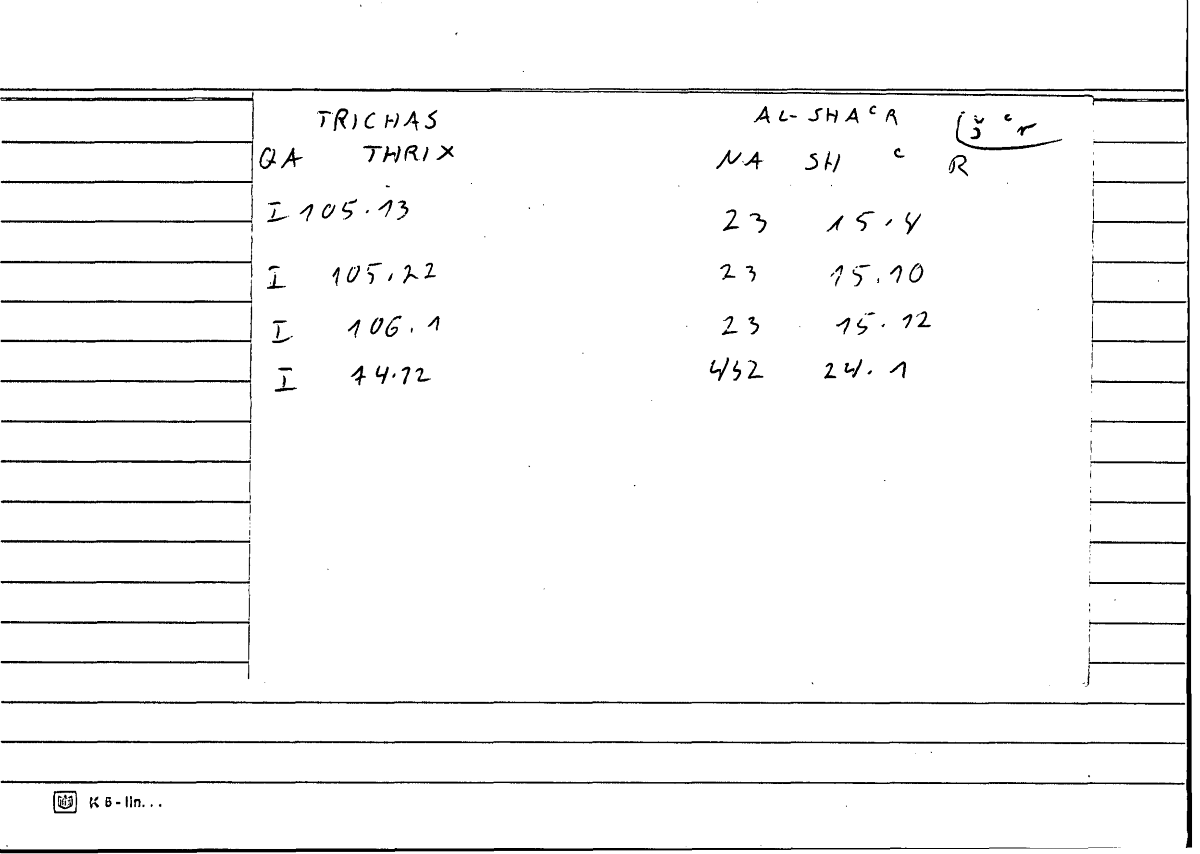 TRICHAS AL-SHAᶜR (šᶜr
QA THRIX NA SH ᶜ R
I 105.13 23 15.4
I 105.22 23 15.10
I 106.1 23 15.12
I 74.12 432 24.1
K 6 - lin...